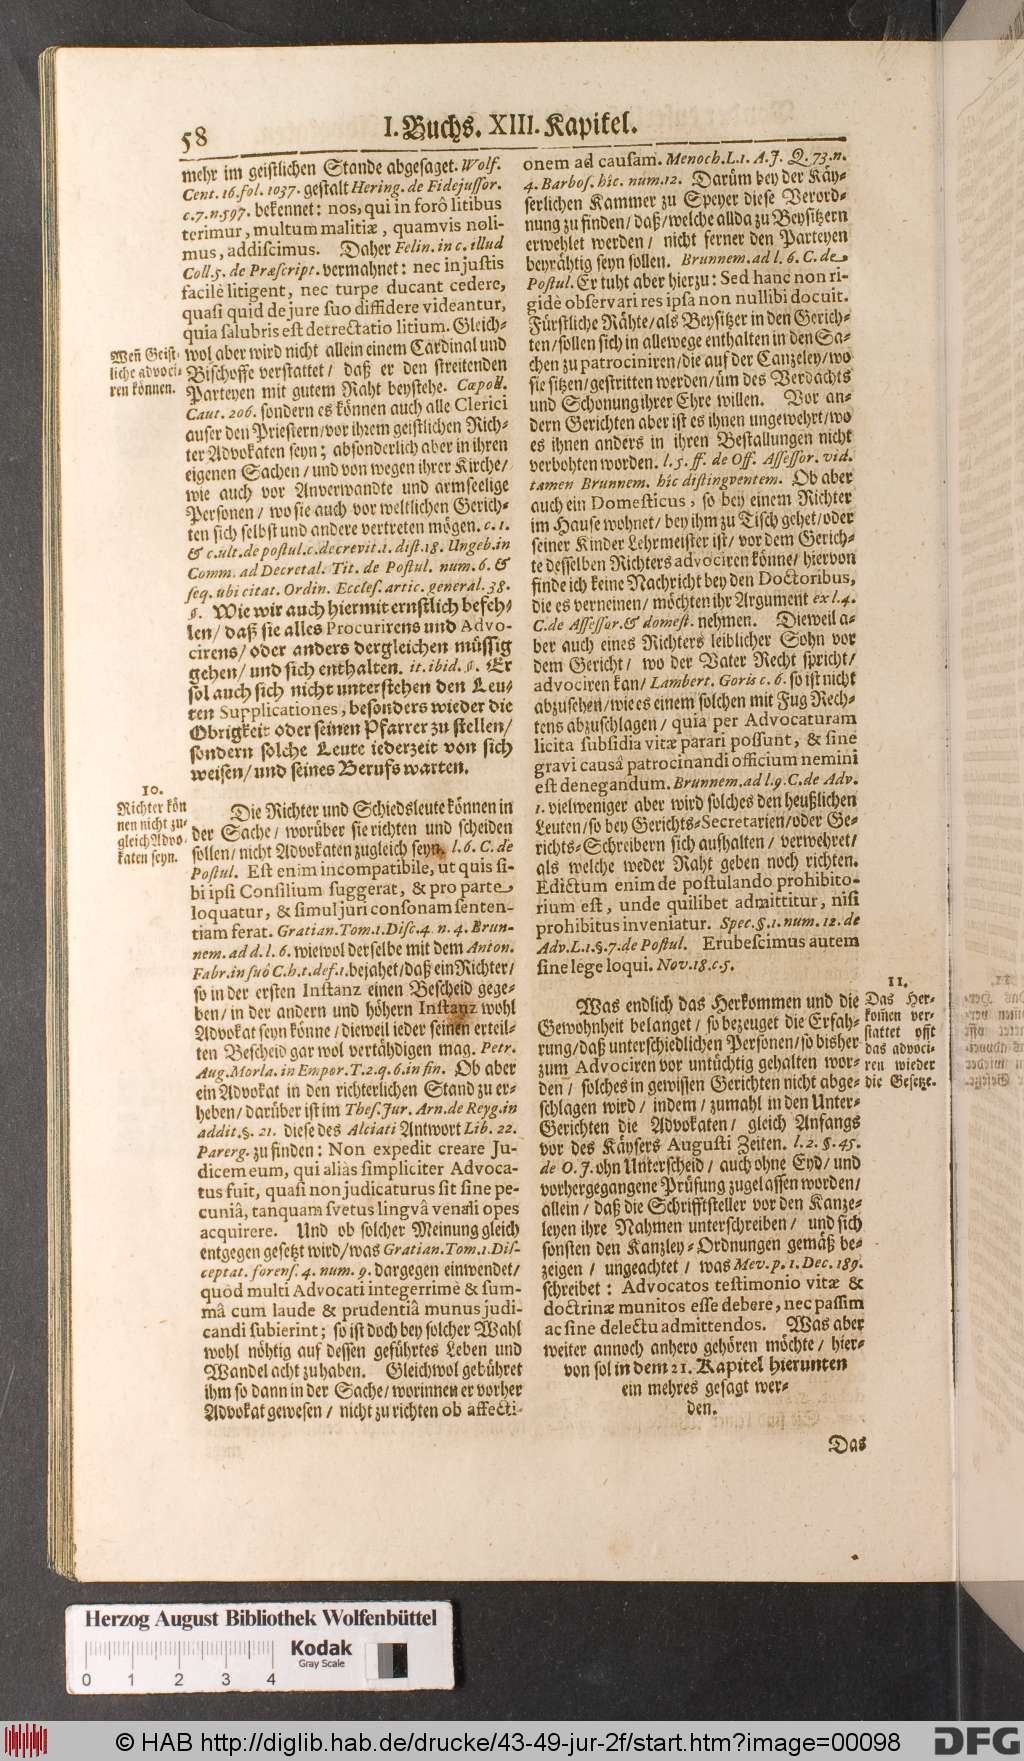 58
I. Buchs. XIII. Kapitel.
mehr im geistlichen Stande abgesaget. Wolf.
Cent. 16. fol. 1037. gestalt Hering. de Fidejussor.
c. 7. n. 597. bekennet: nos, qui in forô litibus
terimur, multum malitiæ, quamvis noli-
mus, addiscimus. Daher Felin. in c. illud
Coll. 5. de Præscript. vermahnet: nec injustis
facilè litigent, nec turpe ducant cedere,
quasi quid de jure suo diffidere videantur,
quia salubris est detrectatio litium. Gleich-
Weñ Geist-
liche advoci-
ren können.
wol aber wird nicht allein einem Cardinal und
Bischoffe verstattet / daß er den streitenden
Parteyen mit gutem Raht beystehe. Cæpoll.
Caut. 206. sondern es können auch alle Clerici
auser den Priestern / vor ihrem geistlichen Rich-
ter Advokaten seyn; absonderlich aber in ihren
eigenen Sachen / und von wegen ihrer Kirche /
wie auch vor Anverwandte und armseelige
Personen / wo sie auch vor weltlichen Gerich-
ten sich selbst und andere vertreten mögen. c. 1.
& c. ult. de postul. c. decrevit. 1. dist. 18. Ungeb. in
Comm. ad Decretal. Tit. de Postul. num. 6. &
seq. ubi citat. Ordin. Eccles. artic. general. 38.
§. Wie wir auch hiermit ernstlich befeh-
len / daß sie alles Procurirens und Advo-
cirens / oder anders dergleichen müssig
gehen / und sich enthalten. it. ibid. §. Er
sol auch sich nicht unterstehen den Leu-
ten Supplicationes, besonders wieder die
Obrigkeit oder seinen Pfarrer zu stellen /
sondern solche Leute iederzeit von sich
weisen / und seines Berufs warten.
10.
Richter kön
nen nicht zu-
gleich Advo-
katen seyn.
Die Richter und Schiedsleute können in
der Sache / worüber sie richten und scheiden
sollen / nicht Advokaten zugleich seyn. l. 6. C. de
Postul. Est enim incompatibile, ut quis si-
bi ipsi Consilium suggerat, & pro parte
loquatur, & simul juri consonam senten-
tiam ferat. Gratian. Tom. 1. Disc. 4. n. 4. Brun-
nem. ad d. l. 6. wiewol derselbe mit dem Anton.
Fabr. in suô C. h. t. def. 1. bejahet / daß ein Richter /
so in der ersten Instanz einen Bescheid gege-
ben / in der andern und höhern Instanz wohl
Advokat seyn könne / dieweil ieder seinen erteil-
ten Bescheid gar wol vertähdigen mag. Petr.
Aug. Morla. in Empor. T. 2. q. 6. in fin. Ob aber
ein Advokat in den richterlichen Stand zu er-
heben / darüber ist im Thes. Jur. Arn. de Reyg. in
addit. §. 21. diese des Alciati Antwort Lib. 22.
Parerg. zu finden: Non expedit creare Ju-
dicem eum, qui aliàs simpliciter Advoca-
tus fuit, quasi non judicaturus sit sine pe-
cuniâ, tanquam svetus lingvâ venali opes
acquirere. Und ob solcher Meinung gleich
entgegen gesetzt wird / was Gratian. Tom. 1. Dis-
ceptat. forens. 4. num. 9. dargegen einwendet /
quòd multi Advocati integerrimè & sum-
mâ cum laude & prudentiâ munus judi-
candi subierint; so ist doch bey solcher Wahl
wohl nöhtig auf dessen geführtes Leben und
Wandel acht zu haben. Gleichwol gebühret
ihm so dann in der Sache / worinnen er vorher
Advokat gewesen / nicht zu richten ob affecti-
onem ad causam. Menoch. L. 1. A. J. Q. 73. n.
4. Barbos. hîc. num. 12. Darüm bey der Käy-
serlichen Kammer zu Speyer diese Verord-
nung zu finden / daß / welche allda zu Beysitzern
erwehlet werden / nicht ferner den Parteyen
beyrähtig seyn sollen. Brunnem. ad l. 6. C. de
Postul. Er tuht aber hierzu: Sed hanc non ri-
gidè observari res ipsa non nullibi docuit.
Fürstliche Rähte / als Beysitzer in den Gerich-
ten / sollen sich in allewege enthalten in den Sa-
chen zu patrociniren / die auf der Canzeley / wo
sie sitzen / gestritten werden / üm des Verdachts
und Schonung ihrer Ehre willen. Vor an-
dern Gerichten aber ist es ihnen ungewehrt / wo
es ihnen anders in ihren Bestallungen nicht
verbohten worden. l. 5. ff. de Off. Assessor. vid.
tamen Brunnem. hîc distingventem. Ob aber
auch ein Domesticus, so bey einem Richter
im Hause wohnet / bey ihm zu Tisch gehet / oder
seiner Kinder Lehrmeister ist / vor dem Gerich-
te desselben Richters advociren könne / hiervon
finde ich keine Nachricht bey den Doctoribus,
die es verneinen / möchten ihr Argument ex l. 4.
C. de Assessor. & domest. nehmen. Dieweil a-
ber auch eines Richters leiblicher Sohn vor
dem Gericht / wo der Vater Recht spricht /
advociren kan / Lambert. Goris c. 6. so ist nicht
abzusehen / wie es einem solchen mit Fug Rech-
tens abzuschlagen / quia per Advocaturam
licita subsidia vitæ parari possunt, & sine
gravi causâ patrocinandi officium nemini
est denegandum. Brunnem. ad l. 9. C. de Adv.
1. vielweniger aber wird solches den heußlichen
Leuten / so bey Gerichts-Secretarien / oder Ge-
richts-Schreibern sich aushalten / verwehret /
als welche weder Raht geben noch richten.
Edictum enim de postulando prohibito-
rium est, unde quilibet admittitur, nisi
prohibitus inveniatur. Spec. §. 1. num. 12. de
Adv. L. 1. §. 7. de Postul. Erubescimus autem
sine lege loqui. Nov. 18. c. 5.
11.
Das Her-
kom̃en ver-
stattet offt
das advoci-
ren wieder
die Gesetze.
Was endlich das Herkommen und die
Gewohnheit belanget / so bezeuget die Erfah-
rung / daß unterschiedlichen Personen / so bisher
zum Advociren vor untüchtig gehalten wor-
den / solches in gewissen Gerichten nicht abge-
schlagen wird / indem / zumahl in den Unter-
Gerichten die Advokaten / gleich Anfangs
vor des Käysers Augusti Zeiten. l. 2. §. 45.
de O. J. ohn Unterscheid / auch ohne Eyd / und
vorhergegangene Prüfung zugelassen worden /
allein / daß die Schrifftsteller vor den Kanze-
leyen ihre Nahmen unterschreiben / und sich
sonsten den Kanzley-Ordnungen gemäß be-
zeigen / ungeachtet / was Mev. p. 1. Dec. 189.
schreibet: Advocatos testimonio vitæ &
doctrinæ munitos esse debere, nec passim
ac sine delectu admittendos. Was aber
weiter annoch anhero gehören möchte / hier-
von sol in dem 21. Kapitel hierunten
ein mehres gesagt wer-
den.
Das
Herzog August Bibliothek Wolfenbüttel
Kodak
Gray Scale
0 1 2 3 4
© HAB http://diglib.hab.de/drucke/43-49-jur-2f/start.htm?image=00098
DFG